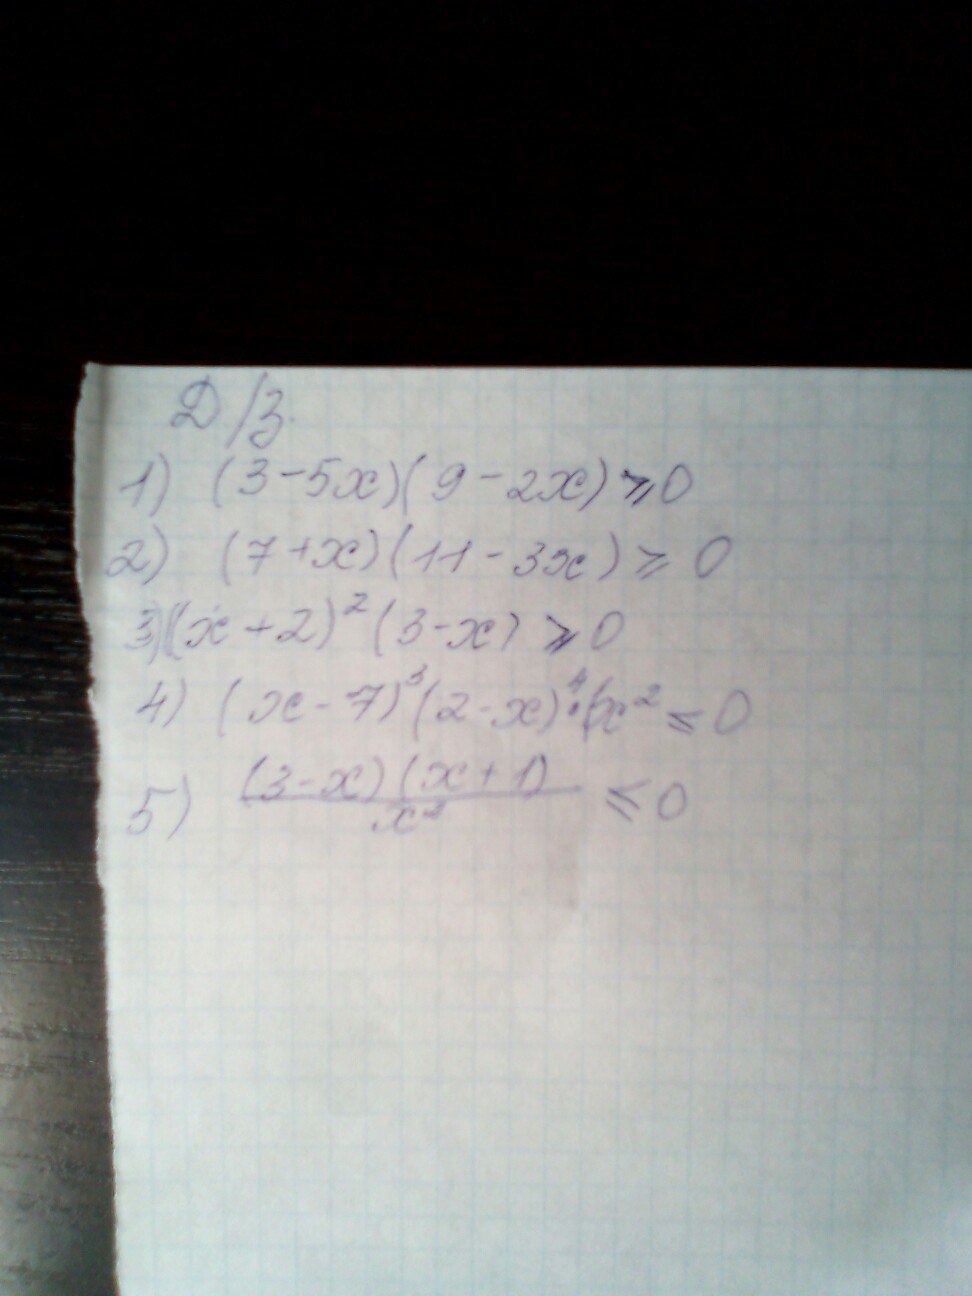 Д/З.
1) (3-5x)(9-2x)⩾0
2) (7+x)(11-3x)⩾0
3) (x+2)²(3-x)⩾0
4) (x-7)³(2-x)⁴·x²⩽0
5) (3-x)(x+1)/x² ⩽0